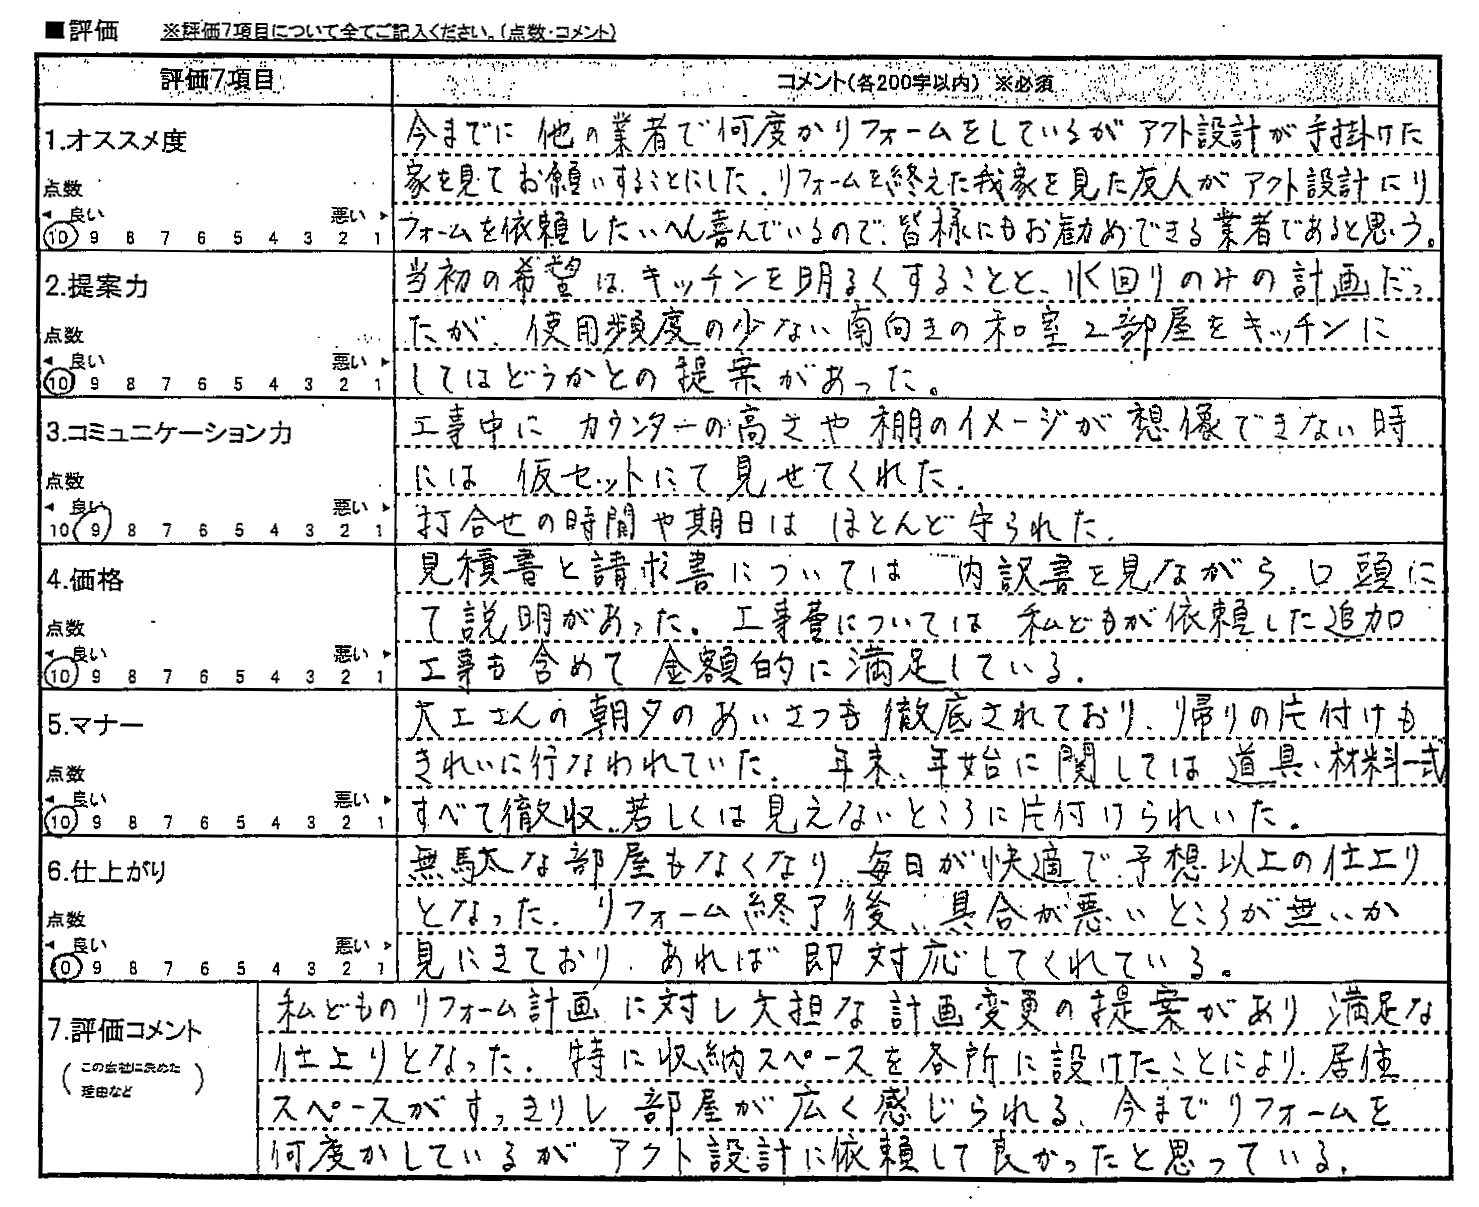 ■評価 ※評価7項目について全てご記入ください。(点数・コメント)
評価7項目
コメント(各200字以内) ※必須
1.オススメ度
点数
◄ 良い 悪い ►
10 9 8 7 6 5 4 3 2 1
今までに 他の業者で何度かリフォームをしているが アクト設計が手掛けた
家を見て お願いすることにした。リフォームを終えた我家を見た友人が アクト設計にリ
フォームを依頼したいへん喜んでいるので、皆様にもお勧めできる業者であると思う。
2.提案力
点数
◄ 良い 悪い ►
10 9 8 7 6 5 4 3 2 1
当初の希望は、キッチンを明るくすることと、水回りのみの計画だっ
たが、使用頻度の少ない南向きの和室2部屋をキッチンに
してはどうかとの提案があった。
3.コミュニケーション力
点数
◄ 良い 悪い ►
10 9 8 7 6 5 4 3 2 1
工事中に カウンターの高さや棚のイメージが想像できない時
には 仮セットにて見せてくれた。
打合せの時間や期日は ほとんど守られた。
4.価格
点数
◄ 良い 悪い ►
10 9 8 7 6 5 4 3 2 1
見積書と請求書については 内訳書を見ながら、口頭に
て説明があった。工事費については 私どもが依頼した追加
工事も含めて 金額的に満足している。
5.マナー
点数
◄ 良い 悪い ►
10 9 8 7 6 5 4 3 2 1
大工さんの朝夕のあいさつも徹底されており、帰りの片付けも
きれいに行なわれていた。 年末、年始に関しては 道具・材料一式
すべて徹収、若しくは見えないところに片付けられいた。
6.仕上がり
点数
◄ 良い 悪い ►
10 9 8 7 6 5 4 3 2 1
無駄な部屋もなくなり、毎日が快適で予想以上の仕上り
となった。リフォーム終了後、具合が悪いところが無いか
見にきており、あれば 即対応してくれている。
7.評価コメント
(この会社に決めた
理由など)
私どものリフォーム計画に対し大担な計画変更の提案があり 満足な
仕上りとなった。特に収納スペースを各所に設けたことにより、居住
スペースがすっきりし 部屋が広く感じられる。今までリフォームを
何度かしているが アクト設計に依頼して良かったと思っている。